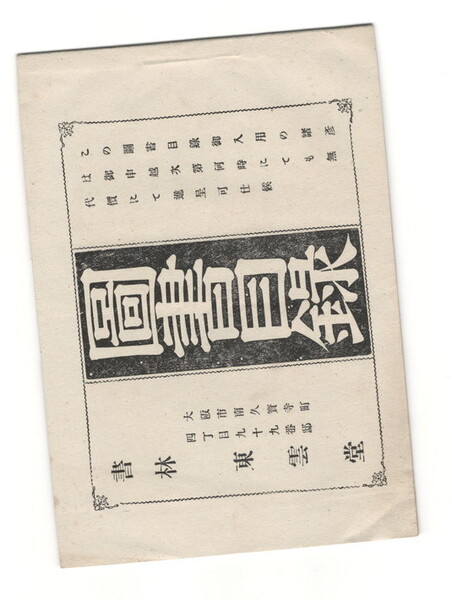 この圖書目錄御入用の諸彦
は御申越次第何時にても無
代價にて進呈可仕候
圖書目錄
大阪市南久寶寺町
四丁目九十九番邸
書林 東雲堂